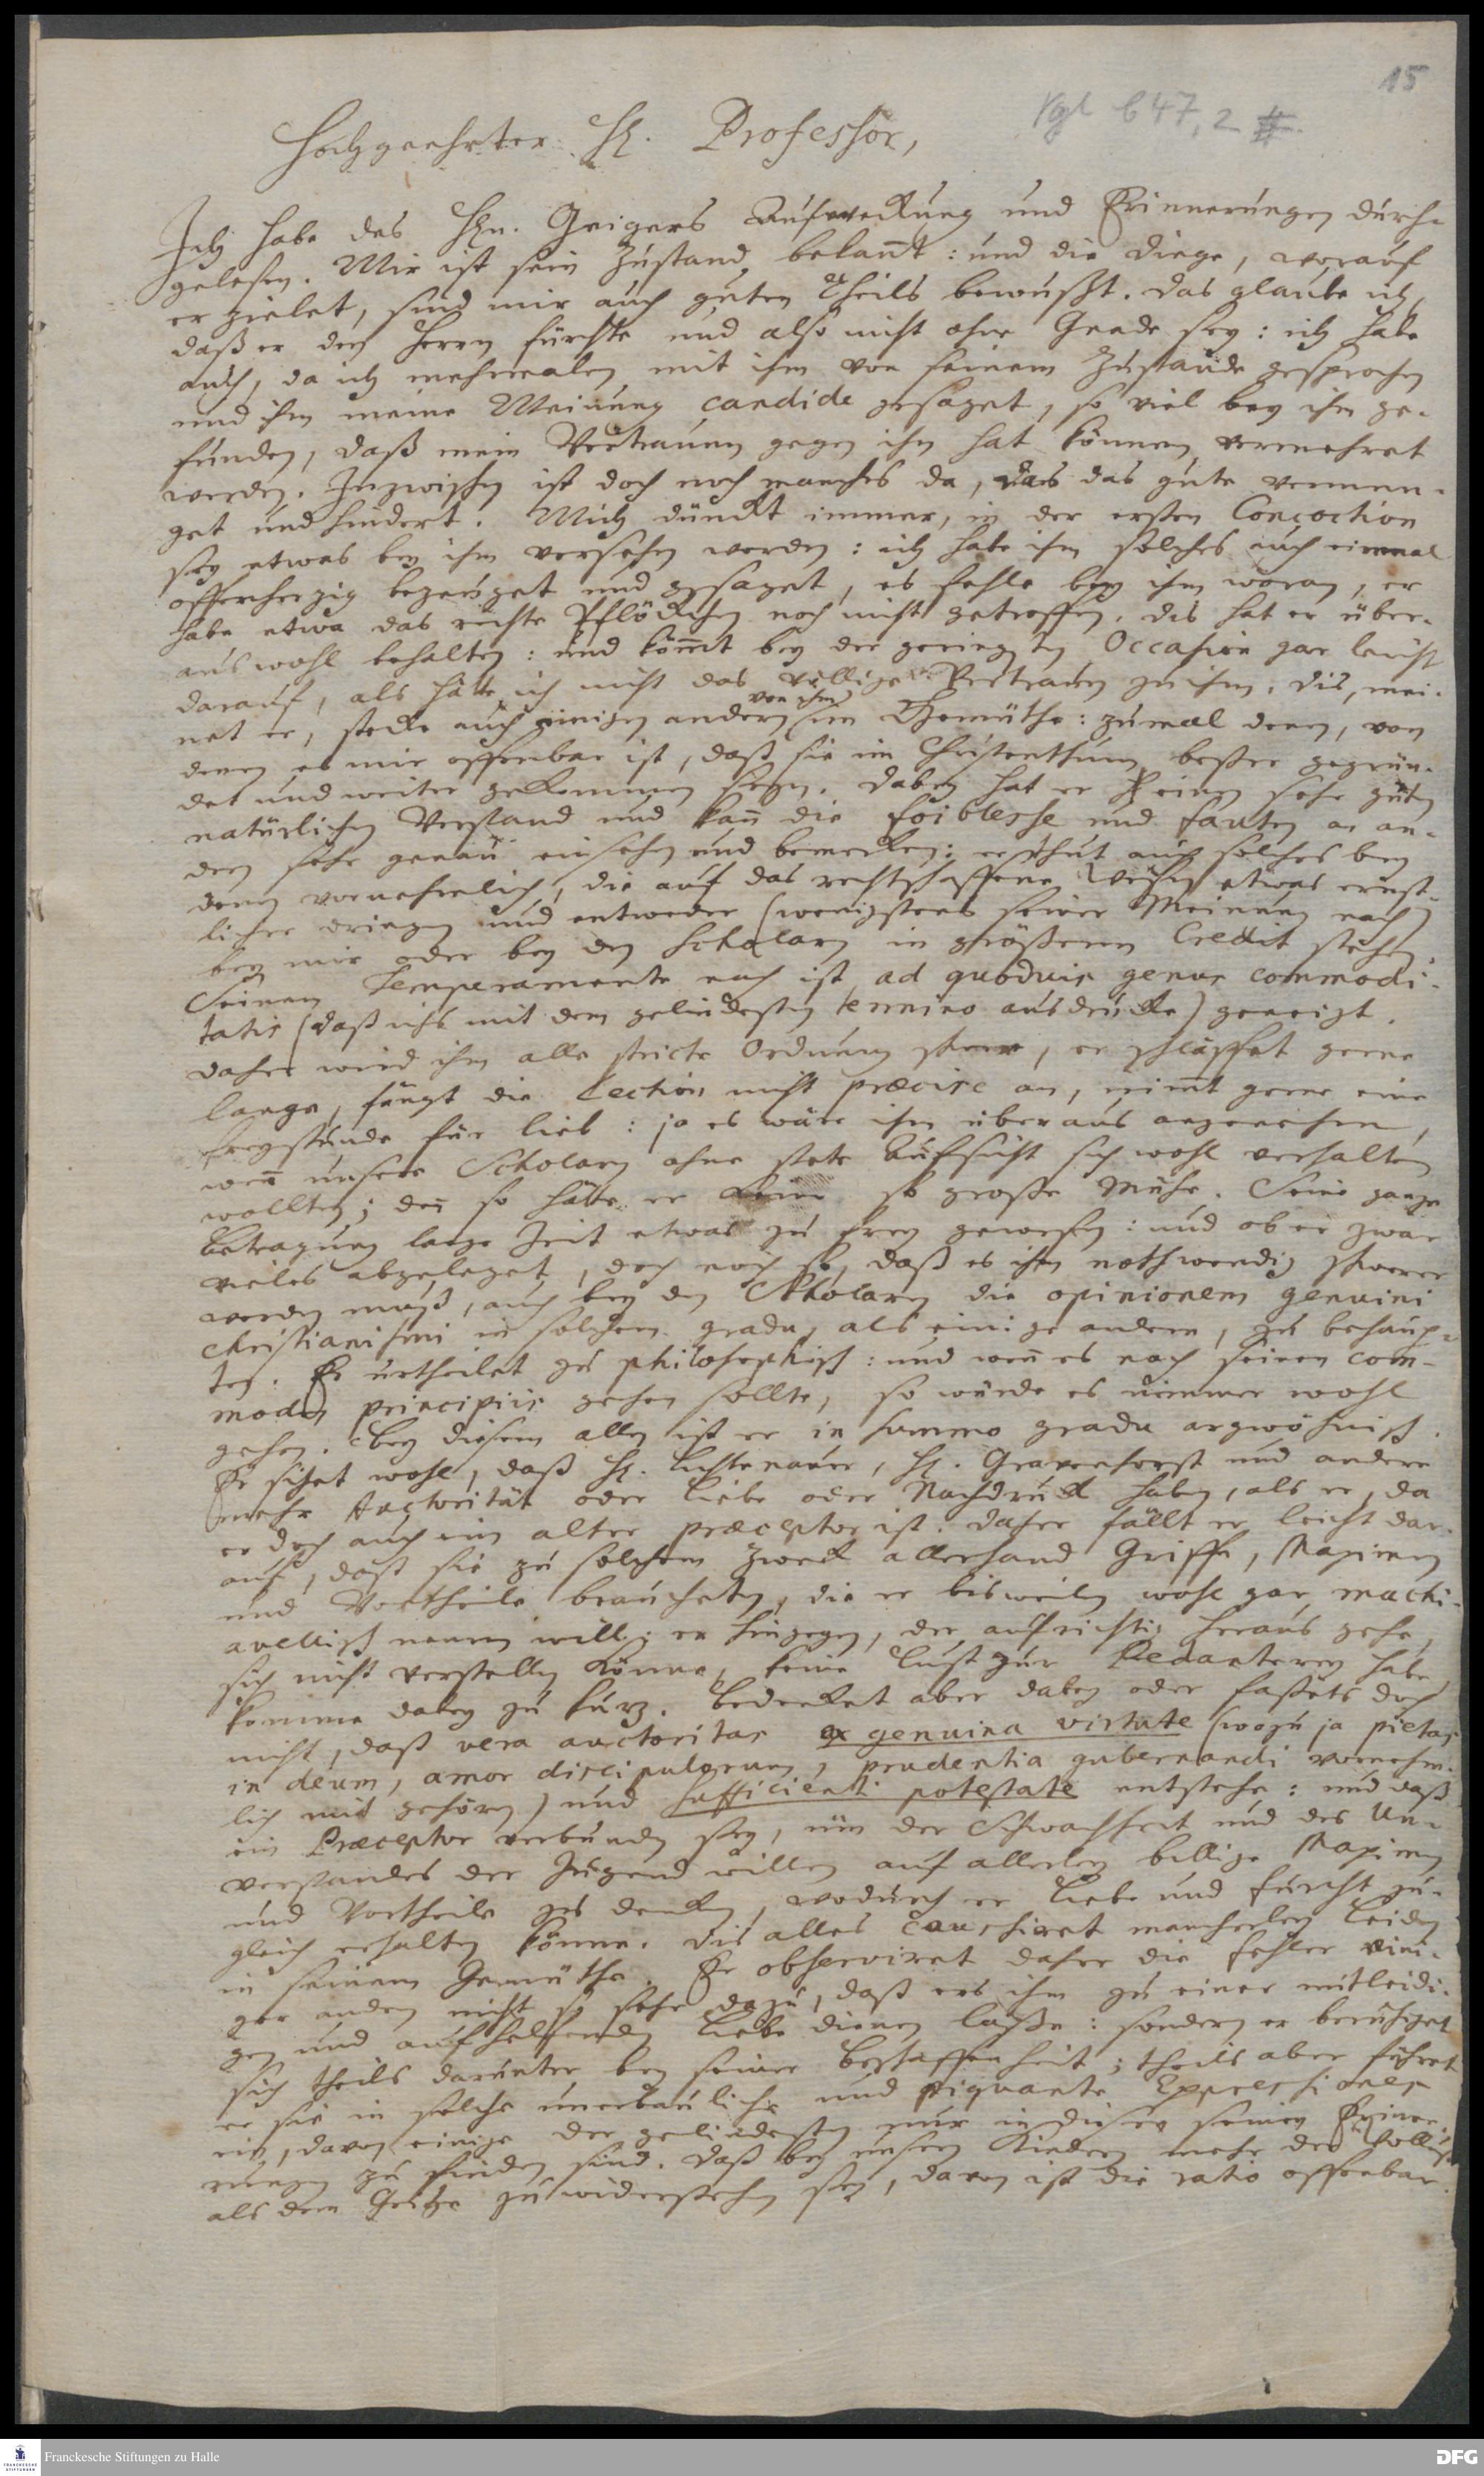 15
Vgl C 47, 2 #.
Hochgeehrter H. Professor,
Ich habe des Hn. Geigers Aufweckung und Erinnerungen durch-
gelesen. Mir ist sein Zustand bekañt: und die Dinge, worauf
er zielet, sind mir auch guten Theils bewußt. Das glaube ich,
daß er den Herrn fürchte und also nicht ohne Gnade sey: ich habe
auch, da ich mehrmalen mit ihm von seinem Zustande gesprochen
und ihm meine Meinung candide gesaget, so viel bey ihm ge-
funden, daß mein Vertrauen gegen ihn hat können vermehret
werden. Inzwischen ist doch noch manches da, das das gute vermen-
get und hindert. Mich dünckt immer, in der ersten Concoction
sey etwas bey ihm versehen worden: ich habe ihm solches auch einmal
offenherzig bezeuget und gesaget, es fehle bey ihm woran, er
habe etwa das rechte Pflöckchen noch nicht getroffen. Dis hat er über-
aus wohl behalten: und köm̃t bey der geringsten Occasion gar leicht
darauf, als hätte ich nicht das völlige Vertrauen zu ihm. Dis, mei-
net er, stecke auch einigen andern von ihm im Gemüthe: zumal denen, von
denen es mir offenbar ist, daß sie im Christenthum besser gegrün-
det und weiter gekommen seyn. Dabey hat er einen sehr guten
natürlichen Verstand und kañ die foiblesse und fauten an an-
dern sehr genau einsehen und bemercken: er thut auch solches bey
denen vornehmlich, die auf das rechtschaffene Wesen etwas ernst-
licher dringen und entweder (wenigstens seiner Meinung nach)
bey mir oder bey den Scholaren in größerm Credit stehen.
Seinem Temperamente nach ist ad quodvis genus commodi-
tatis (daß ichs mit dem gelindesten termino ausdrücke) geneigt.
Daher wird ihm alle stricte Ordnung schwer, er schläffet gerne
lange, fängt die Lection nicht praecise an, nim̃t gerne eine
Freystunde für lieb: ja es wäre ihm überaus angenehm,
weñ unsere Scholaren ohne stete Aufsicht sich wohl verhalten
wollten; deñ so hätte er keine so große Mühe. Seine ganze
Betragung lange Zeit etwas zu frey gewesen: und ob er zwar
vieles abgeleget, doch noch so, daß es ihm nothwendig schwerer
werden muß, auch bey den Scholaren die opinionem genuini
christianismi in solchem gradu, als einige andern, zu behaup-
ten. Er urtheilet zu philosophisch: und weñ es nach seinen com-
moden principiis gehen sollte, so würde es nimmer wohl
gehen. Bey diesem allen ist er in summo gradu argwöhnisch.
Er sihet wohl, daß H. Lichtenauer, H. Gravenhorst und andere
mehr Auctorität oder Liebe oder Nachdruck haben, als er, da
er doch auch ein alter praeceptor ist. Daher fällt er leicht dar-
auf, daß sie zu solchem Zweck allerhand Griffe, Maximen
und Vortheile braucheten, die er bisweilen wohl gar machi-
avellisch nennen will; er hingegen, der aufrichtig heraus gehe,
sich nicht verstellen könne, keine Lust zur Pedanterey habe,
komme dabey zu kurz. Bedencket aber dabey oder fassets doch
nicht, daß vera auctoritas ex genuina virtute (wozu ja pietas
in deum, amor discipulorum, prudentia gubernandi vornehm-
lich mit gehören) und sufficienti potestate entstehe: und daß
ein Praeceptor verbunden sey, um der Schwachheit und des Un-
verstandes der Jugend willen auf allerley billige Maximen
und Vortheile zu dencken, wodurch er Liebe und Furcht zu-
gleich erhalten könne. Dis alles caussiret mancherley Leiden
in seinem Gemüthe. Er observiret daher die Fehler eini-
ger andern nicht so sehr dazu, daß ers ihm zu einer mitleidi-
gen und aufhelfenden Liebe dienen lasse: sondern er beruhiget
sich theils darunter bey seiner Beschaffenheit; theils aber führet
er sie in solche unerbauliche und piquante Expressiones
ein, davon einige der gelindesten nur in diesen seinen Erinne-
rungen zu finden sind. Daß bey unsern Kindern mehr der Wollust
als dem Geitze zu widerstehen sey, davon ist die ratio offenbar.
FRANCKESCHE STIFTUNGEN
Franckesche Stiftungen zu Halle
DFG